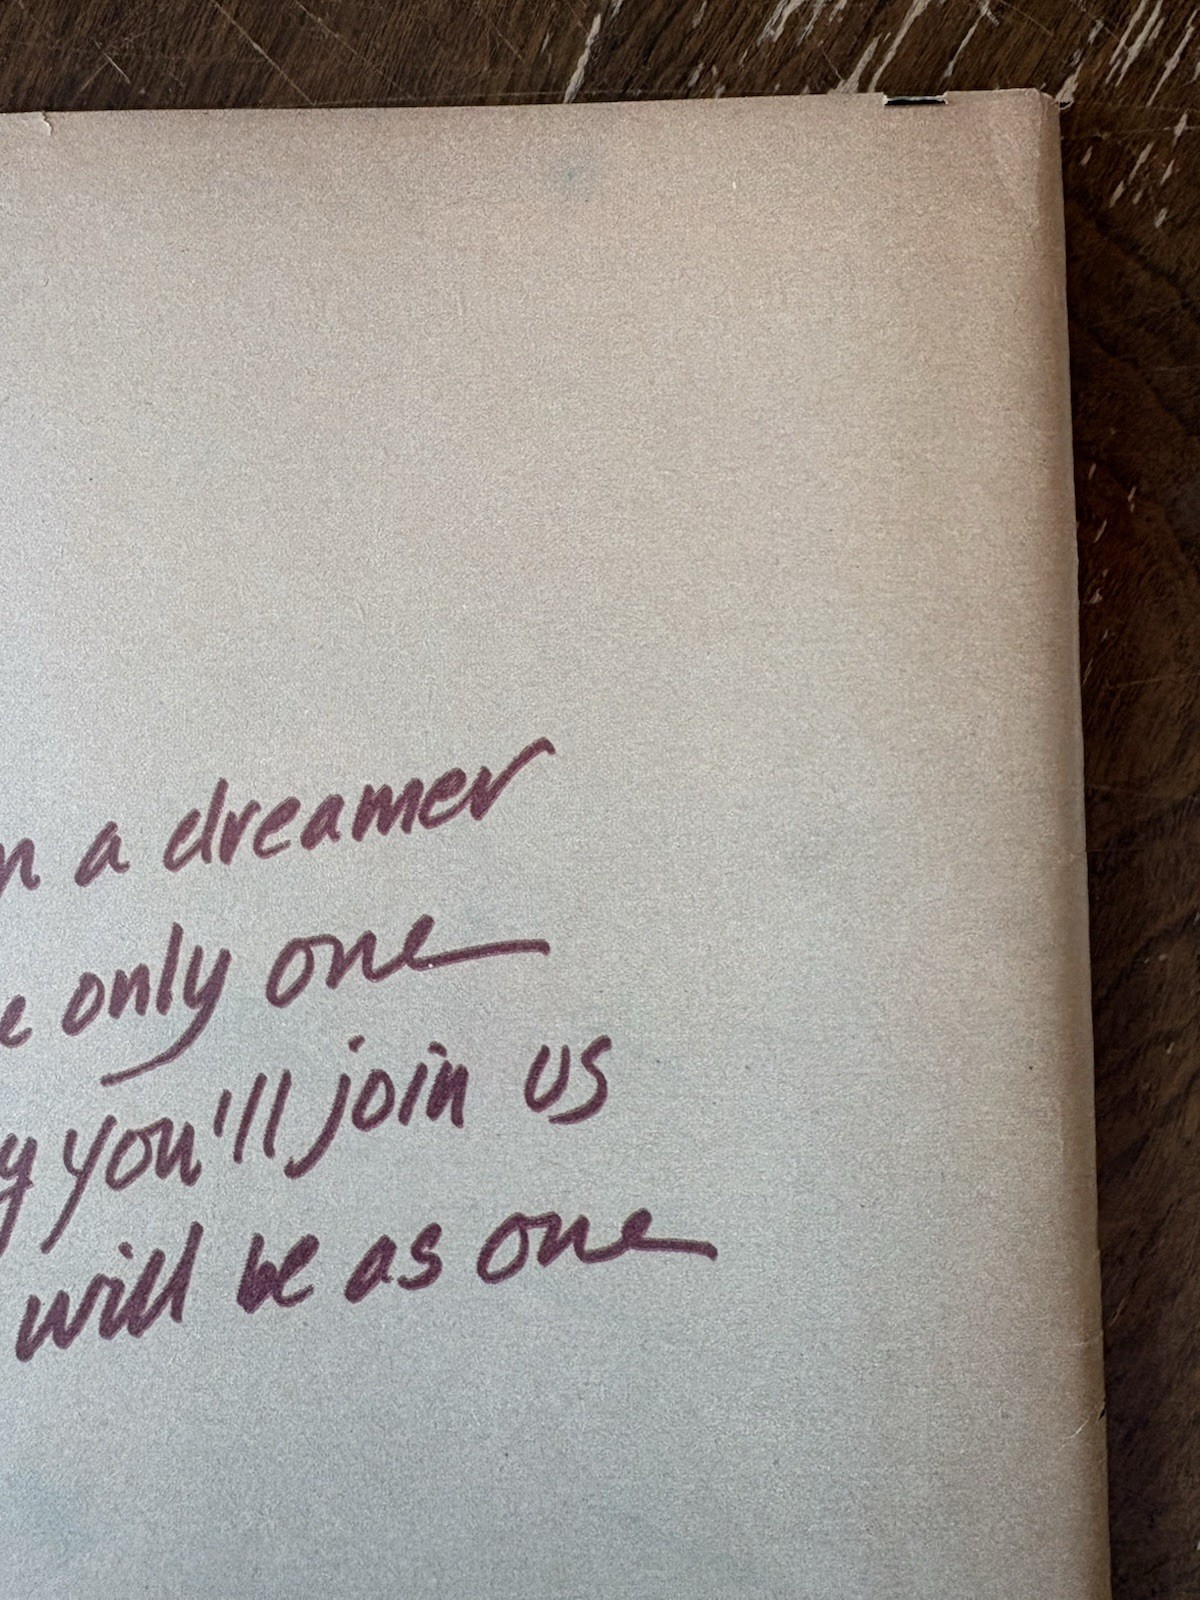 a dreamer
only one
you'll join us
will be as one